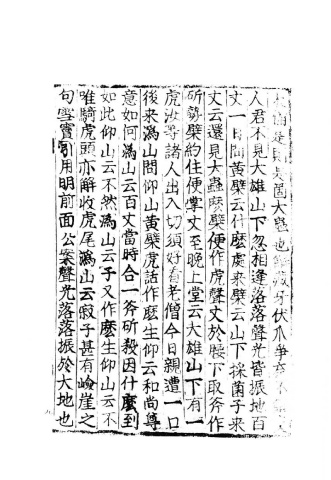 是則是箇大蟲也解藏牙伏爪爭奈不
人君不見大雄山下忽相逢落落聲光皆振地百
丈一日問黃檗云什麽處來檗云山下採菌子來
丈云還見大蟲麽檗便作虎聲丈於腰下取斧作
斫勢檗約住便掌丈至晚上堂云大雄山下有一
虎汝等諸人出入切須好看老僧今日親遭一口
後來溈山問仰山黃檗虎話作麽生仰云和尚尊
意如何溈山云百丈當時合一斧斫殺因什麽到
如此仰山云不然溈山云子又作麽生仰山云不
唯騎虎頭亦解收虎尾溈山云寂子甚有嶮崖之
句雪竇引用明前面公案聲光落落振於大地也